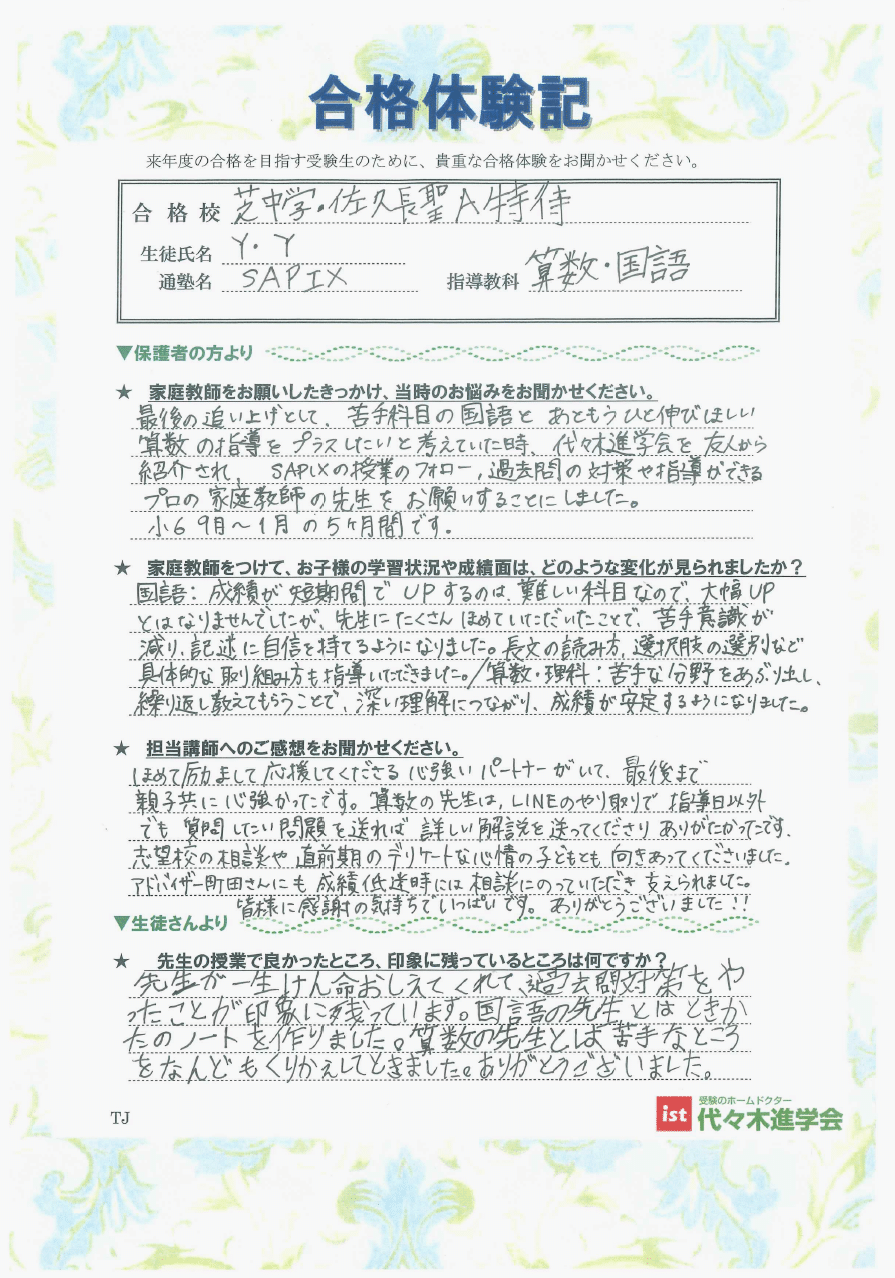 合格体験記
来年度の合格を目指す受験生のために、貴重な合格体験をお聞かせください。
合格校 芝中学・佐久長聖A特待
生徒氏名 Y・Y
通塾名 SAPIX 指導教科 算数・国語
▼保護者の方より
★ 家庭教師をお願いしたきっかけ、当時のお悩みをお聞かせください。
最後の追い上げとして、苦手科目の国語と あともうひと伸びほしい
算数の指導を プラスしたいと考えていた時、代々木進学会を友人から
紹介され、SAPIXの授業のフォロー,過去問の対策や指導ができる
プロの家庭教師の先生をお願いすることにしました。
小6 9月〜1月の5ヶ月間です.
★ 家庭教師をつけて、お子様の学習状況や成績面は、どのような変化が見られましたか？
国語：成績が短期間でUPするのは、難しい科目なので、大幅UP
とはなりませんでしたが、先生にたくさんほめていただいたことで、苦手意識が
減り、記述に自信を持てるようになりました。長文の読み方、選択肢の選別など
具体的な取り組み方も指導いただきました。/算数・理科：苦手な分野をあぶり出し、
繰り返し教えてもらうことで、深い理解につながり、成績が安定するようになりました。
★ 担当講師へのご感想をお聞かせください。
ほめて励まして応援してくださる心強いパートナーがいて、最後まで
親子共に心強かったです。算数の先生は,LINEのやり取りで指導日以外
でも質問したい問題を送れば 詳しい解説を送ってくださり ありがたかったです.
志望校の相談や直前期のデリケートな心情の子どもとも 向きあってくださいました.
アドバイザー町田さんにも成績低迷時には相談にのっていただき支えられました。
皆様に感謝の気持ちでいっぱいです。ありがとうございました!!
▼生徒さんより
★ 先生の授業で良かったところ、印象に残っているところは何ですか？
先生が一生けん命おしえてくれて、過去問対策をや
ったことが印象に残っています。国語の先生とはときか
たのノートを作りました。算数の先生とは苦手なところ
をなんどもくりかえしてときました。ありがとうございました。
TJ
ist 受験のホームドクター
代々木進学会